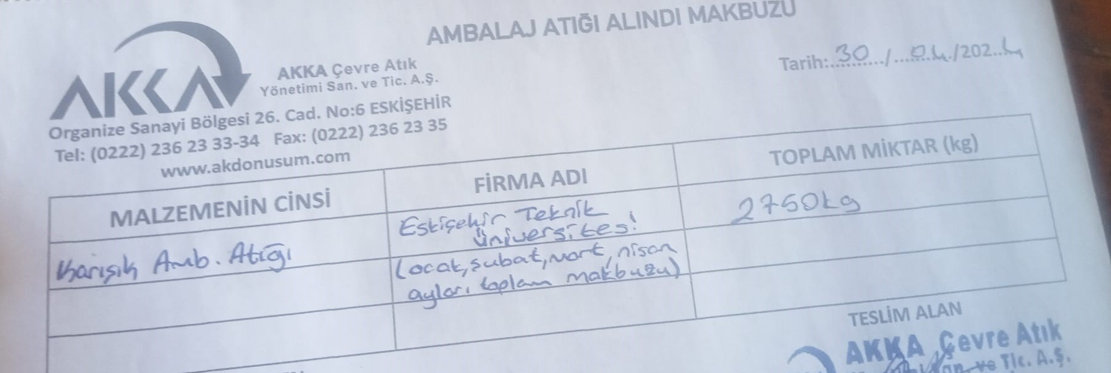 AMBALAJ ATIĞI ALINDI MAKBUZU
AKKA
AKKA Çevre Atık
Yönetimi San. ve Tic. A.Ş.
Tarih:..30..../....04../202..4
Organize Sanayi Bölgesi 26. Cad. No:6 ESKİŞEHİR
Tel: (0222) 236 23 33-34 Fax: (0222) 236 23 35
www.akdonusum.com
MALZEMENİN CİNSİ
FİRMA ADI
TOPLAM MİKTAR (kg)
Karışık Amb. Atığı
Eskişehir Teknik
Üniversitesi
(ocak, şubat, mart, nisan
ayları toplam makbuzu)
2750kg
TESLİM ALAN
AKKA Çevre Atık
San. ve Tic. A.Ş.